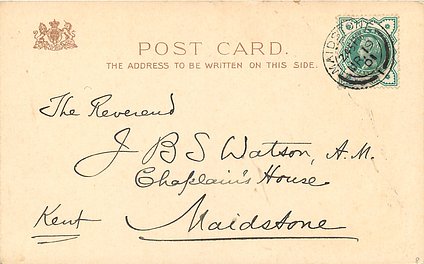 POST CARD.
THE ADDRESS TO BE WRITTEN ON THIS SIDE.
MAIDSTONE
The Reverend
J B S Watson, A.M.
Chaplain's House
Kent Maidstone